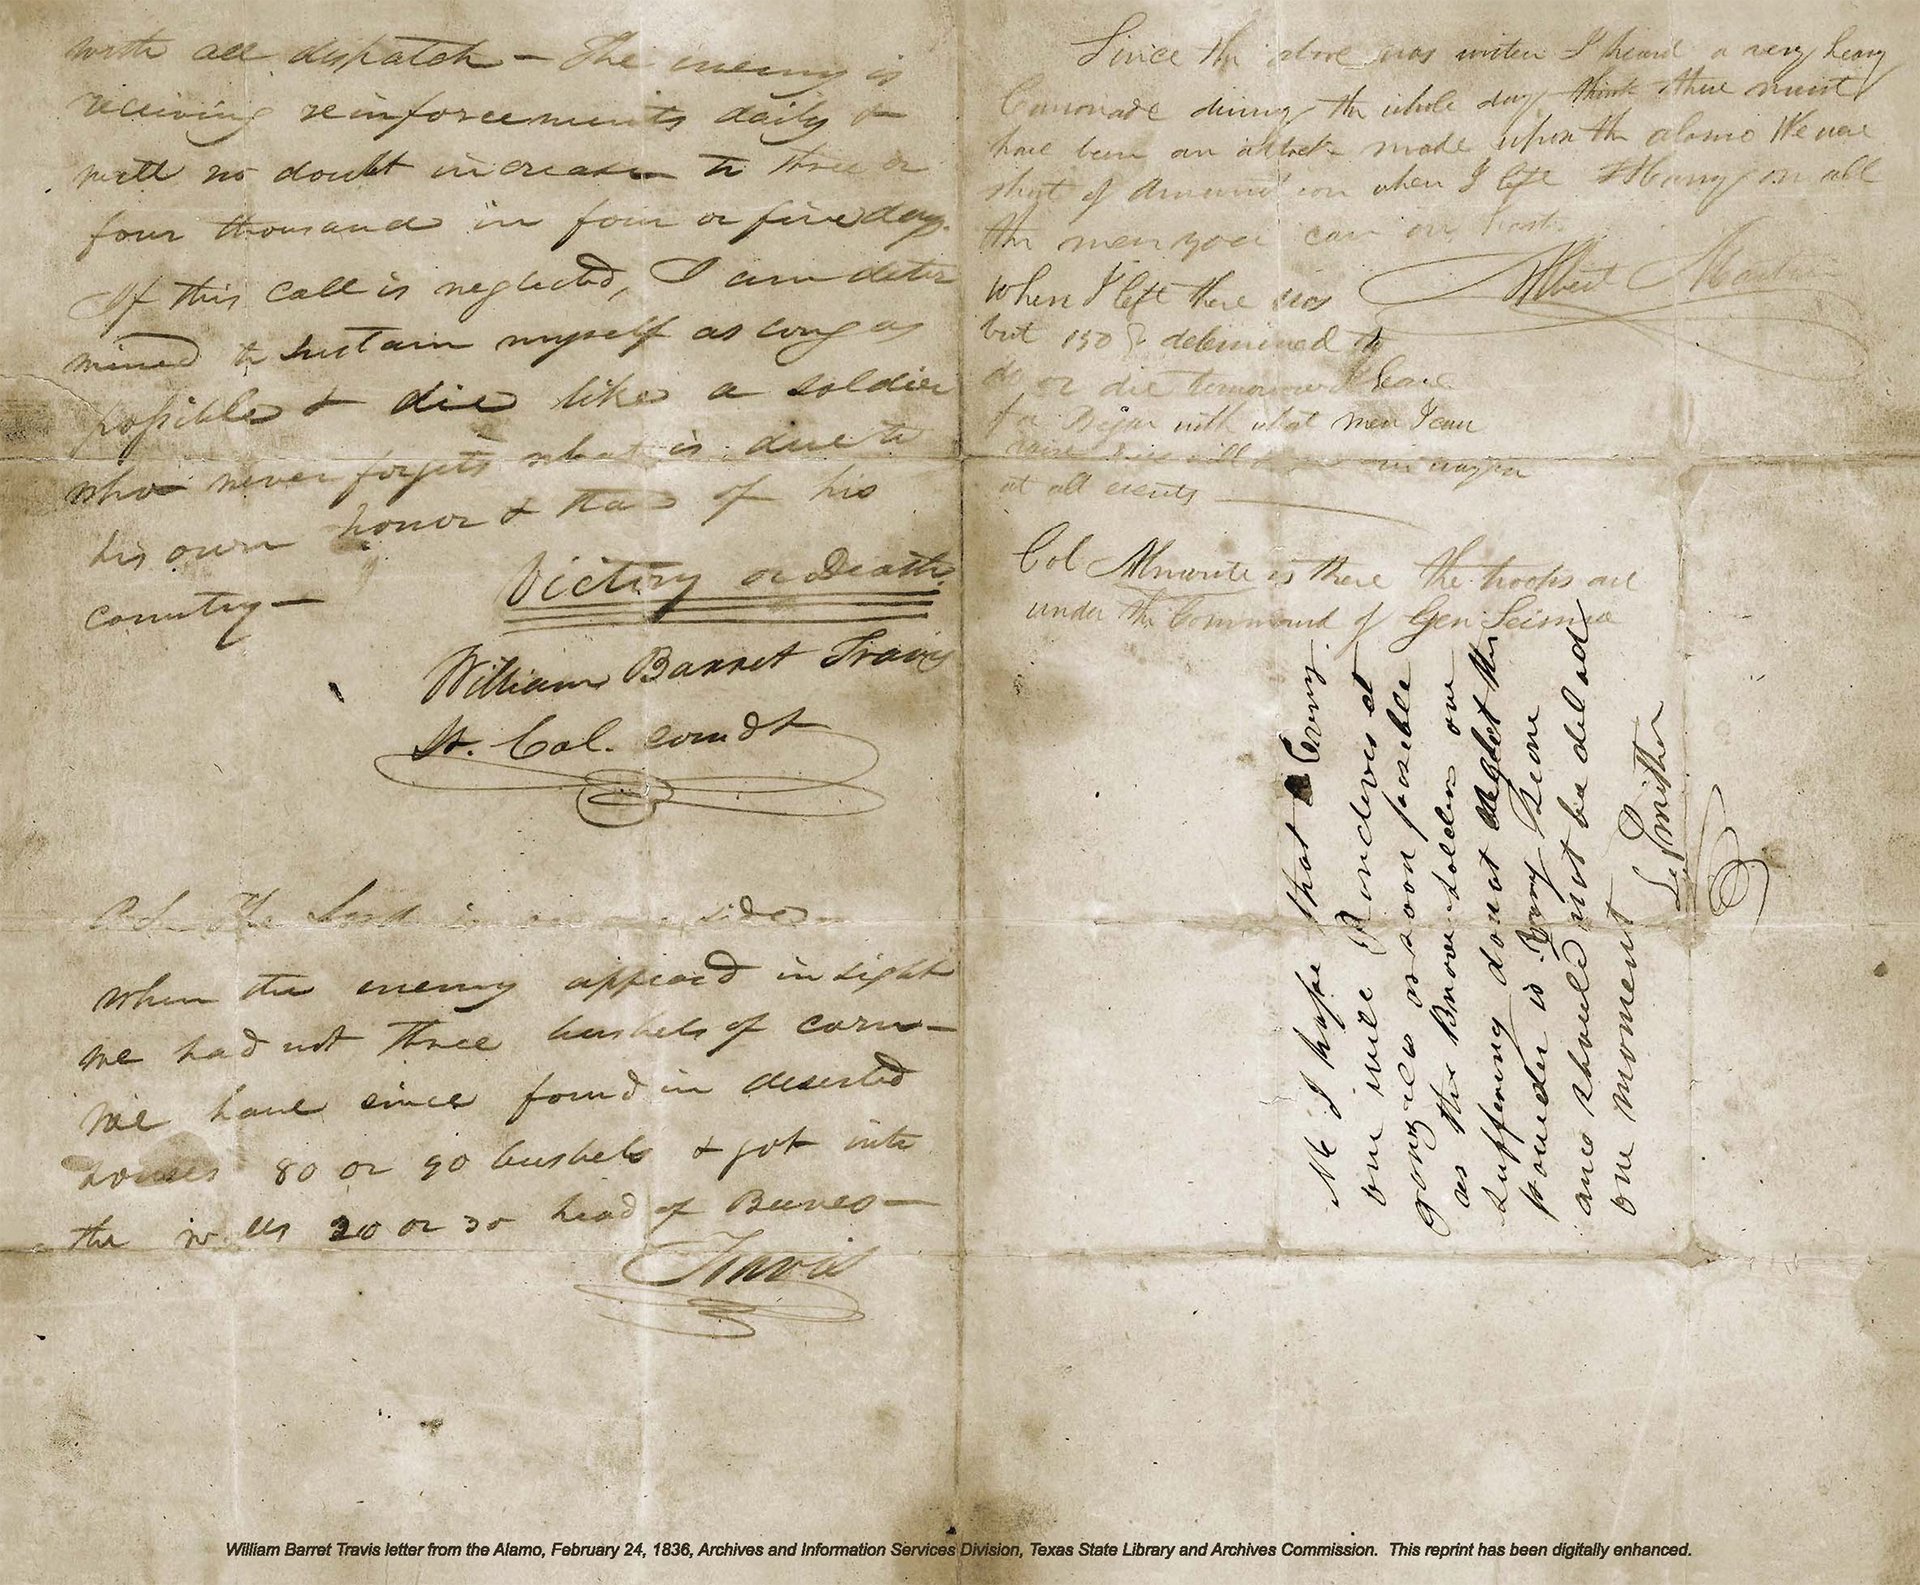 with all dispatch – The enemy is
receiving reinforcements daily &
will no doubt increase to three or
four thousand in four or five days.
If this call is neglected, I am deter
mined to sustain myself as long as
possible & die like a soldier
who never forgets what is due to
his own honor & that of his
country –
Victory or Death
William Barret Travis
Lt. Col. comdt
P.S. The Lord is on our side
When the enemy appeard in sight
we had not three bushels of corn –
We have since found in deserted
houses 80 or 90 bushels & got into
the walls 20 or 30 head of Beeves –
Travis
Since the above was writen I heard a very heavy
Canonade during the whole day think there must
have been an attack made upon the alamo We were
short of Amunition when I left Hurry on all
the men you can in hast
Albert Martin
When I left there was
but 150 & determined to
do or die tomorrow I leave
for Bejar with what men I can
raise
at all events
Col Almonte is there the troops are
under the Command of Gen Seisma
I hope that Every
one will Randeves at
gonzales as soon posebble
as the Brave Solders are
suffering do not neglect the
powder is very scarce
and should not be delad
one moment
L. Smither
William Barret Travis letter from the Alamo, February 24, 1836, Archives and Information Services Division, Texas State Library and Archives Commission. This reprint has been digitally enhanced.